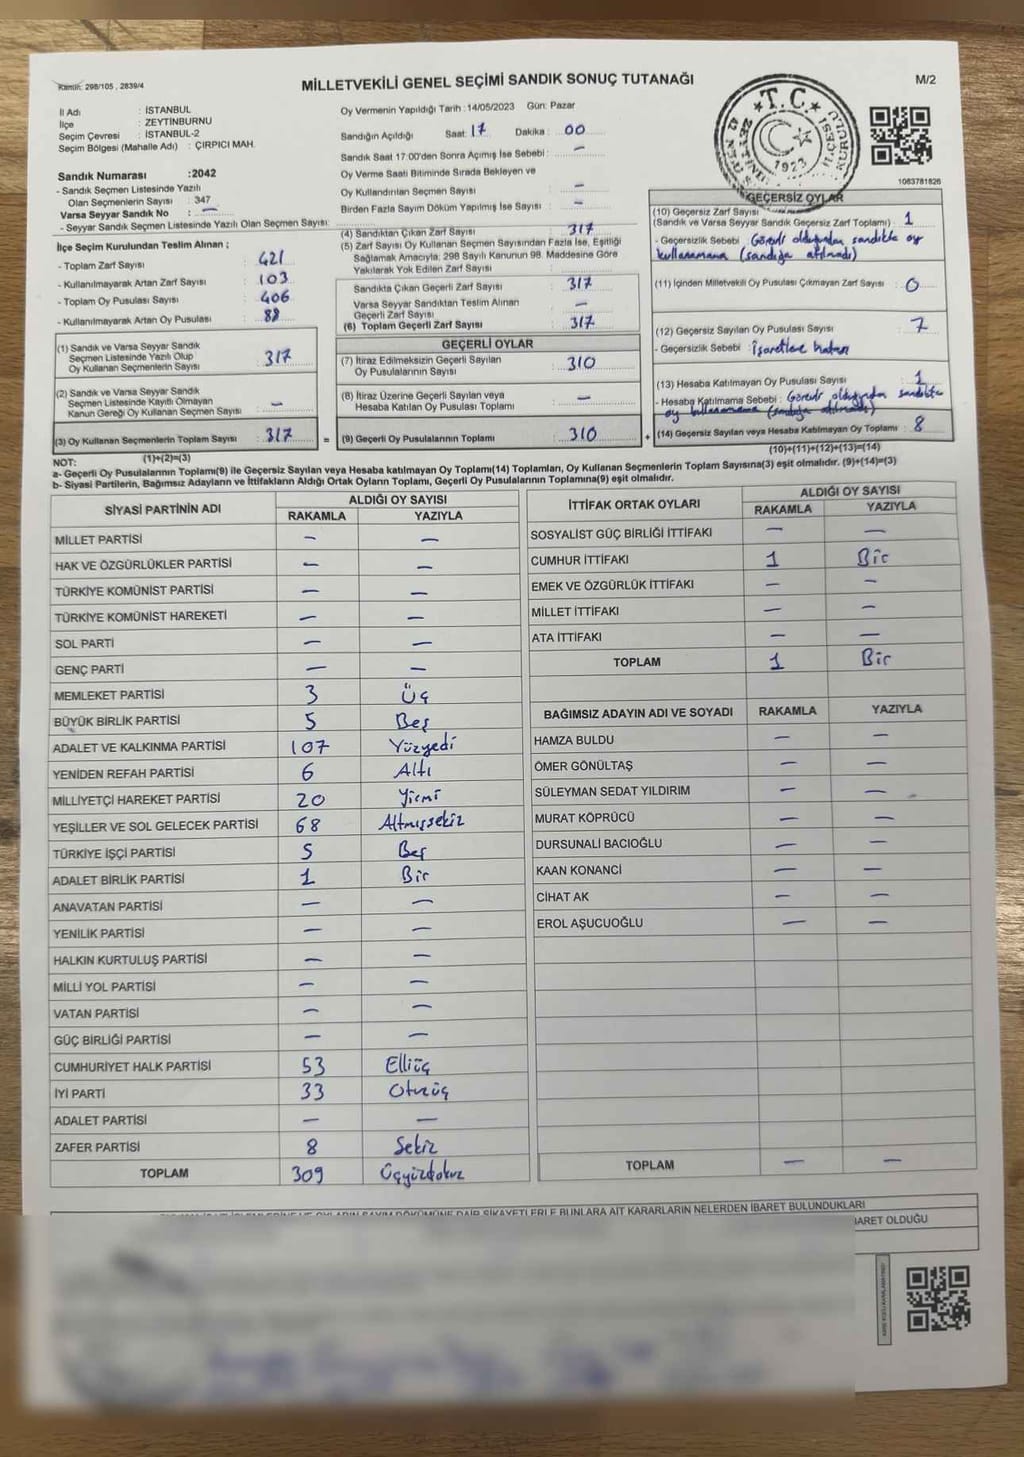 Kanun: 298/105 , 2839/4
MİLLETVEKİLİ GENEL SEÇİMİ SANDIK SONUÇ TUTANAĞI
M/2
İl Adı : İSTANBUL
İlçe : ZEYTİNBURNU
Seçim Çevresi : İSTANBUL-2
Seçim Bölgesi (Mahalle Adı) : ÇIRPICI MAH.
Sandık Numarası :2042
- Sandık Seçmen Listesinde Yazılı
Olan Seçmenlerin Sayısı : 347
Varsa Seyyar Sandık No : —
- Seyyar Sandık Seçmen Listesinde Yazılı Olan Seçmen Sayısı:
İlçe Seçim Kurulundan Teslim Alınan ;
- Toplam Zarf Sayısı : 421
- Kullanılmayarak Artan Zarf Sayısı : 103
- Toplam Oy Pusulası Sayısı : 406
- Kullanılmayarak Artan Oy Pusulası : 88
(1) Sandık ve Varsa Seyyar Sandık
Seçmen Listesinde Yazılı Olup
Oy Kullanan Seçmenlerin Sayısı : 317
(2) Sandık ve Varsa Seyyar Sandık
Seçmen Listesinde Kayıtlı Olmayan
Kanun Gereği Oy Kullanan Seçmen Sayısı : —
(3) Oy Kullanan Seçmenlerin Toplam Sayısı : 317 =
(1)+(2)=(3)
Oy Vermenin Yapıldığı Tarih :14/05/2023 Gün: Pazar
Sandığın Açıldığı Saat: 17 Dakika : 00
Sandık Saat 17:00'den Sonra Açımış İse Sebebi : —
Oy Verme Saati Bitiminde Sırada Bekleyen ve
Oy Kullandırılan Seçmen Sayısı : —
Birden Fazla Sayım Döküm Yapılmış İse Sayısı : —
(4) Sandıktan Çıkan Zarf Sayısı : 317
(5) Zarf Sayısı Oy Kullanan Seçmen Sayısından Fazla İse, Eşitliği
Sağlamak Amacıyla; 298 Sayılı Kanunun 98. Maddesine Göre
Yakılarak Yok Edilen Zarf Sayısı :
Sandıkta Çıkan Geçerli Zarf Sayısı : 317
Varsa Seyyar Sandıktan Teslim Alınan
Geçerli Zarf Sayısı : —
(6) Toplam Geçerli Zarf Sayısı : 317
GEÇERLİ OYLAR
(7) İtiraz Edilmeksizin Geçerli Sayılan
Oy Pusulalarının Sayısı : 310
(8) İtiraz Üzerine Geçerli Sayılan veya
Hesaba Katılan Oy Pusulası Toplamı : —
(9) Geçerli Oy Pusulalarının Toplamı : 310 +
T.C.
1923
1063781826
GEÇERSİZ OYLAR
(10) Geçersiz Zarf Sayısı
(Sandık ve Varsa Seyyar Sandık Geçersiz Zarf Toplamı) : 1
- Geçersizlik Sebebi : Görevli olduğundan sandıkta oy
kullanamama (sandığa atılmadı)
(11) İçinden Milletvekili Oy Pusulası Çıkmayan Zarf Sayısı : 0
(12) Geçersiz Sayılan Oy Pusulası Sayısı : 7
- Geçersizlik Sebebi : İşaretleme hatası
(13) Hesaba Katılmayan Oy Pusulası Sayısı : 1
- Hesaba Katılmama Sebebi : Görevli olduğundan sandıkta
oy kullanamama (sandığa atılmadı)
(14) Geçersiz Sayılan veya Hesaba Katılmayan Oy Toplamı : 8
(10)+(11)+(12)+(13)=(14)
NOT:
a- Geçerli Oy Pusulalarının Toplamı(9) ile Geçersiz Sayılan veya Hesaba katılmayan Oy Toplamı(14) Toplamları, Oy Kullanan Seçmenlerin Toplam Sayısına(3) eşit olmalıdır. (9)+(14)=(3)
b- Siyasi Partilerin, Bağımsız Adayların ve İttifakların Aldığı Oyların Toplamı, Geçerli Oy Pusulalarının Toplamına(9) eşit olmalıdır.
SİYASİ PARTİNİN ADI ALDIĞI OY SAYISI
RAKAMLA YAZIYLA
MİLLET PARTİSİ — —
HAK VE ÖZGÜRLÜKLER PARTİSİ — —
TÜRKİYE KOMÜNİST PARTİSİ — —
TÜRKİYE KOMÜNİST HAREKETİ — —
SOL PARTİ — —
GENÇ PARTİ — —
MEMLEKET PARTİSİ 3 Üç
BÜYÜK BİRLİK PARTİSİ 5 Beş
ADALET VE KALKINMA PARTİSİ 107 Yüzyedi
YENİDEN REFAH PARTİSİ 6 Altı
MİLLİYETÇİ HAREKET PARTİSİ 20 Yirmi
YEŞİLLER VE SOL GELECEK PARTİSİ 68 Altmışsekiz
TÜRKİYE İŞÇİ PARTİSİ 5 Beş
ADALET BİRLİK PARTİSİ 1 Bir
ANAVATAN PARTİSİ — —
YENİLİK PARTİSİ — —
HALKIN KURTULUŞ PARTİSİ — —
MİLLİ YOL PARTİSİ — —
VATAN PARTİSİ — —
GÜÇ BİRLİĞİ PARTİSİ — —
CUMHURİYET HALK PARTİSİ 53 Elliüç
İYİ PARTİ 33 Otuzüç
ADALET PARTİSİ — —
ZAFER PARTİSİ 8 Sekiz
TOPLAM 309 Üçyüzdokuz
İTTİFAK ORTAK OYLARI ALDIĞI OY SAYISI
RAKAMLA YAZIYLA
SOSYALİST GÜÇ BİRLİĞİ İTTİFAKI — —
CUMHUR İTTİFAKI 1 Bir
EMEK VE ÖZGÜRLÜK İTTİFAKI — —
MİLLET İTTİFAKI — —
ATA İTTİFAKI — —
TOPLAM 1 Bir
BAĞIMSIZ ADAYIN ADI VE SOYADI RAKAMLA YAZIYLA
HAMZA BULDU — —
ÖMER GÖNÜLTAŞ — —
SÜLEYMAN SEDAT YILDIRIM — —
MURAT KÖPRÜCÜ — —
DURSUNALİ BACIOĞLU — —
KAAN KONANCİ — —
CİHAT AK — —
EROL AŞUCUOĞLU — —
TOPLAM — —
DAİR ŞİKAYETLERLE BUNLARA AİT KARARLARIN NELERDEN İBARET BULUNDUKLARI
BARET OLDUĞU